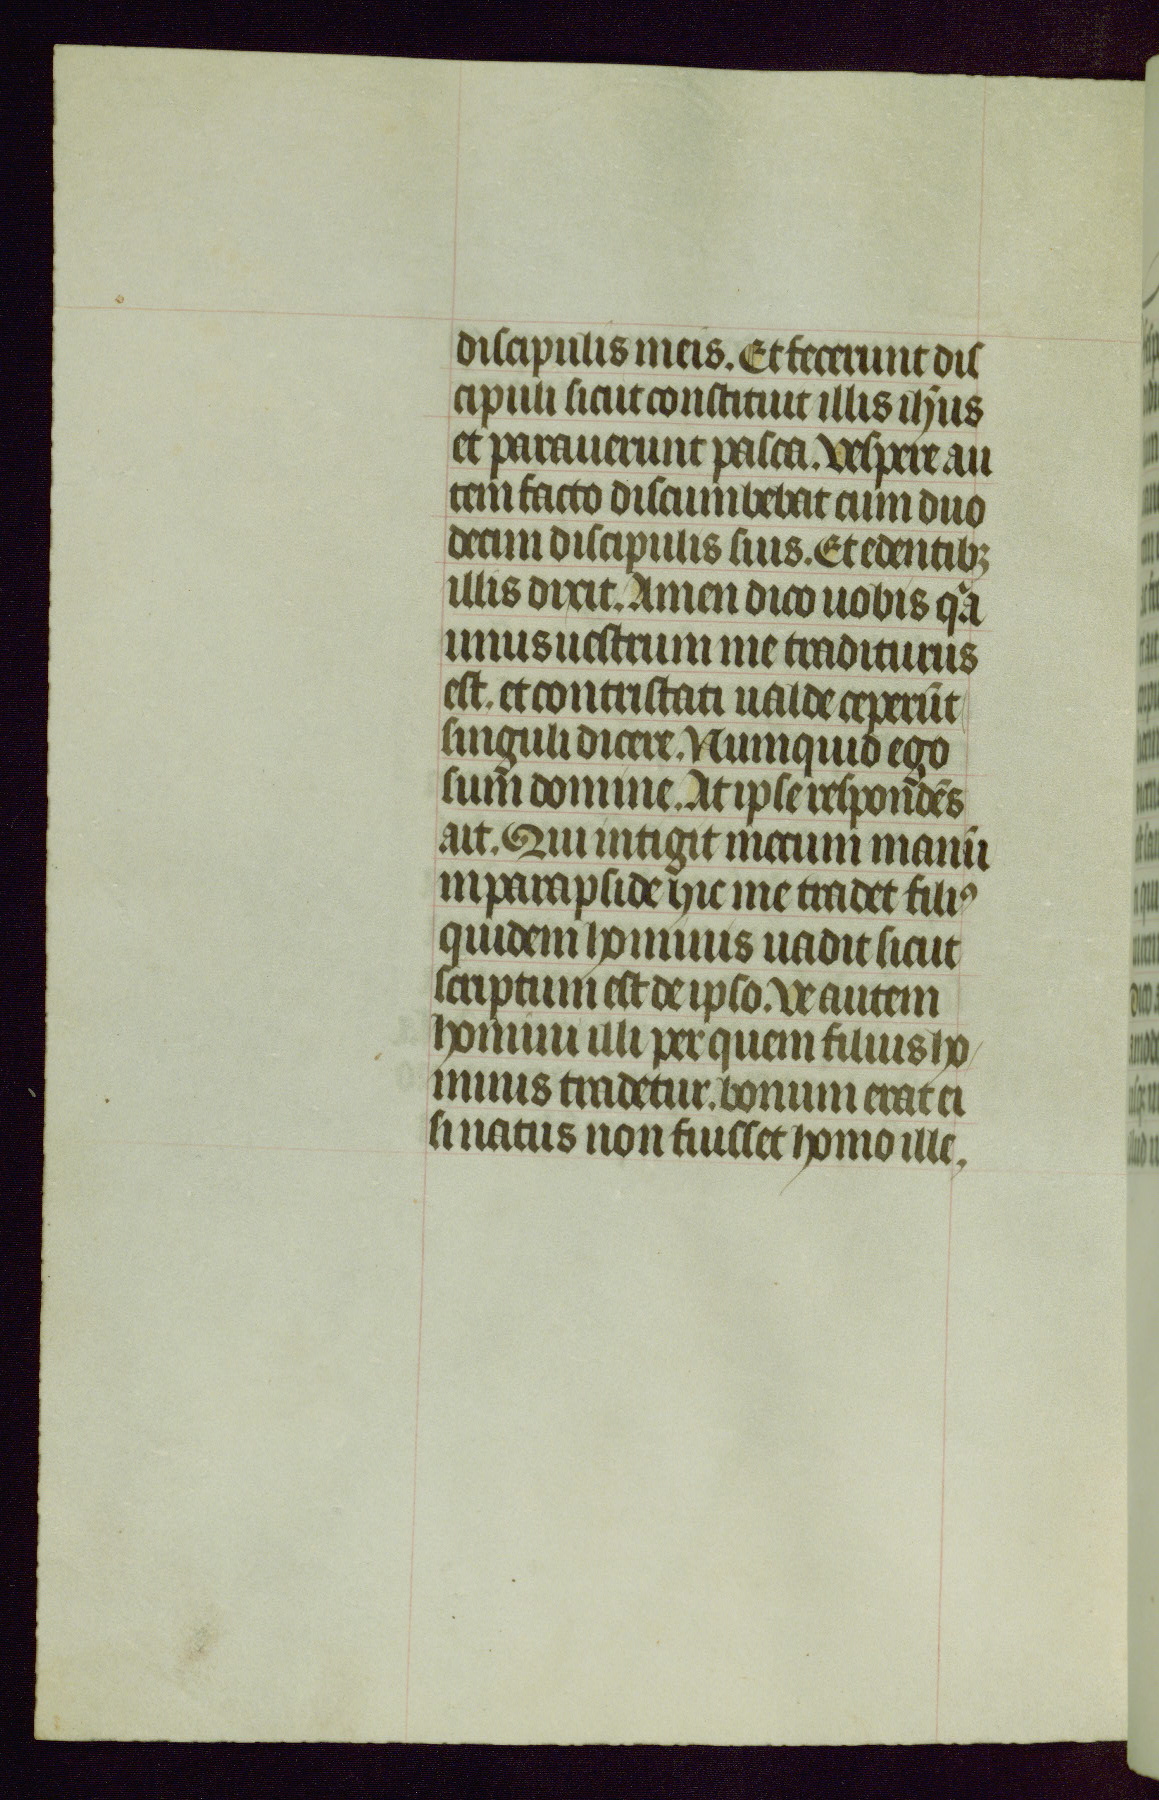 discipulis meis. Et fecerunt dis
cipuli sicut constituit illis ih̄us
et parauerunt pasca. Vespere au
tem facto discumbebat cum duo
decim discipulis suis. Et edentibꝫ
illis dixit. Amen dico uobis qͥa
unus uestrum me traditurus
est. et contristati ualde ceperūt
singuli dicere. Numquid ego
sum̄ domine. At ipse respon̄dēs
ait. Qui intigit mecum manū
in parapside hic me tradet filiꝰ
quidem hominis uadit sicut
scriptum est de ipso. Ve autem
homini illi per quem filius ho
minis tradetur. bonum erat ei
si natus non fuisset homo ille,